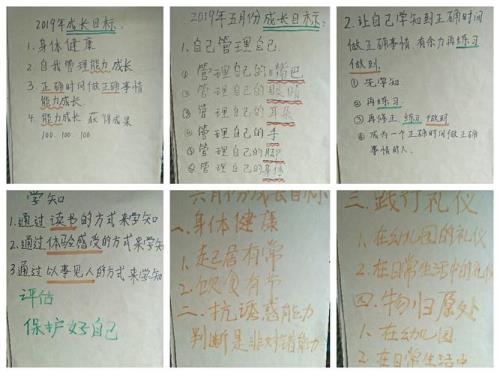 2019年成长目标
1.身体健康
2.自我管理能力成长
3.正确时间做正确事情
能力成长
4.能力成长获得成果
100.100.100
2019年五月份成长目标:
1.自己管理自己
①管理自己的嘴巴
②管理自己的眼睛
③管理自己的耳朵
④管理自己的手
⑤管理自己的脚
⑥管理自己的身体
2.让自己学知到正确时间
做正确事情有余力再练习
做到.
①先学知
②再练习
③再修正练习做到
④成为一个正确时间做正确
事情的人.
学知
1.通过读书的方式来学知
2.通过体验感受的方式来学知
3通过以事见人的方式来学知
评估
保护好自己
六月份成长目标
一.身体健康
1.起居有常
2.饮食有节
二.抗诱惑能力
判断是非对错能力
三.践行礼仪
1.在幼儿园的礼仪
2.在日常生活中的礼仪
四.物归原处
1.在幼儿园
2.在日常生活中